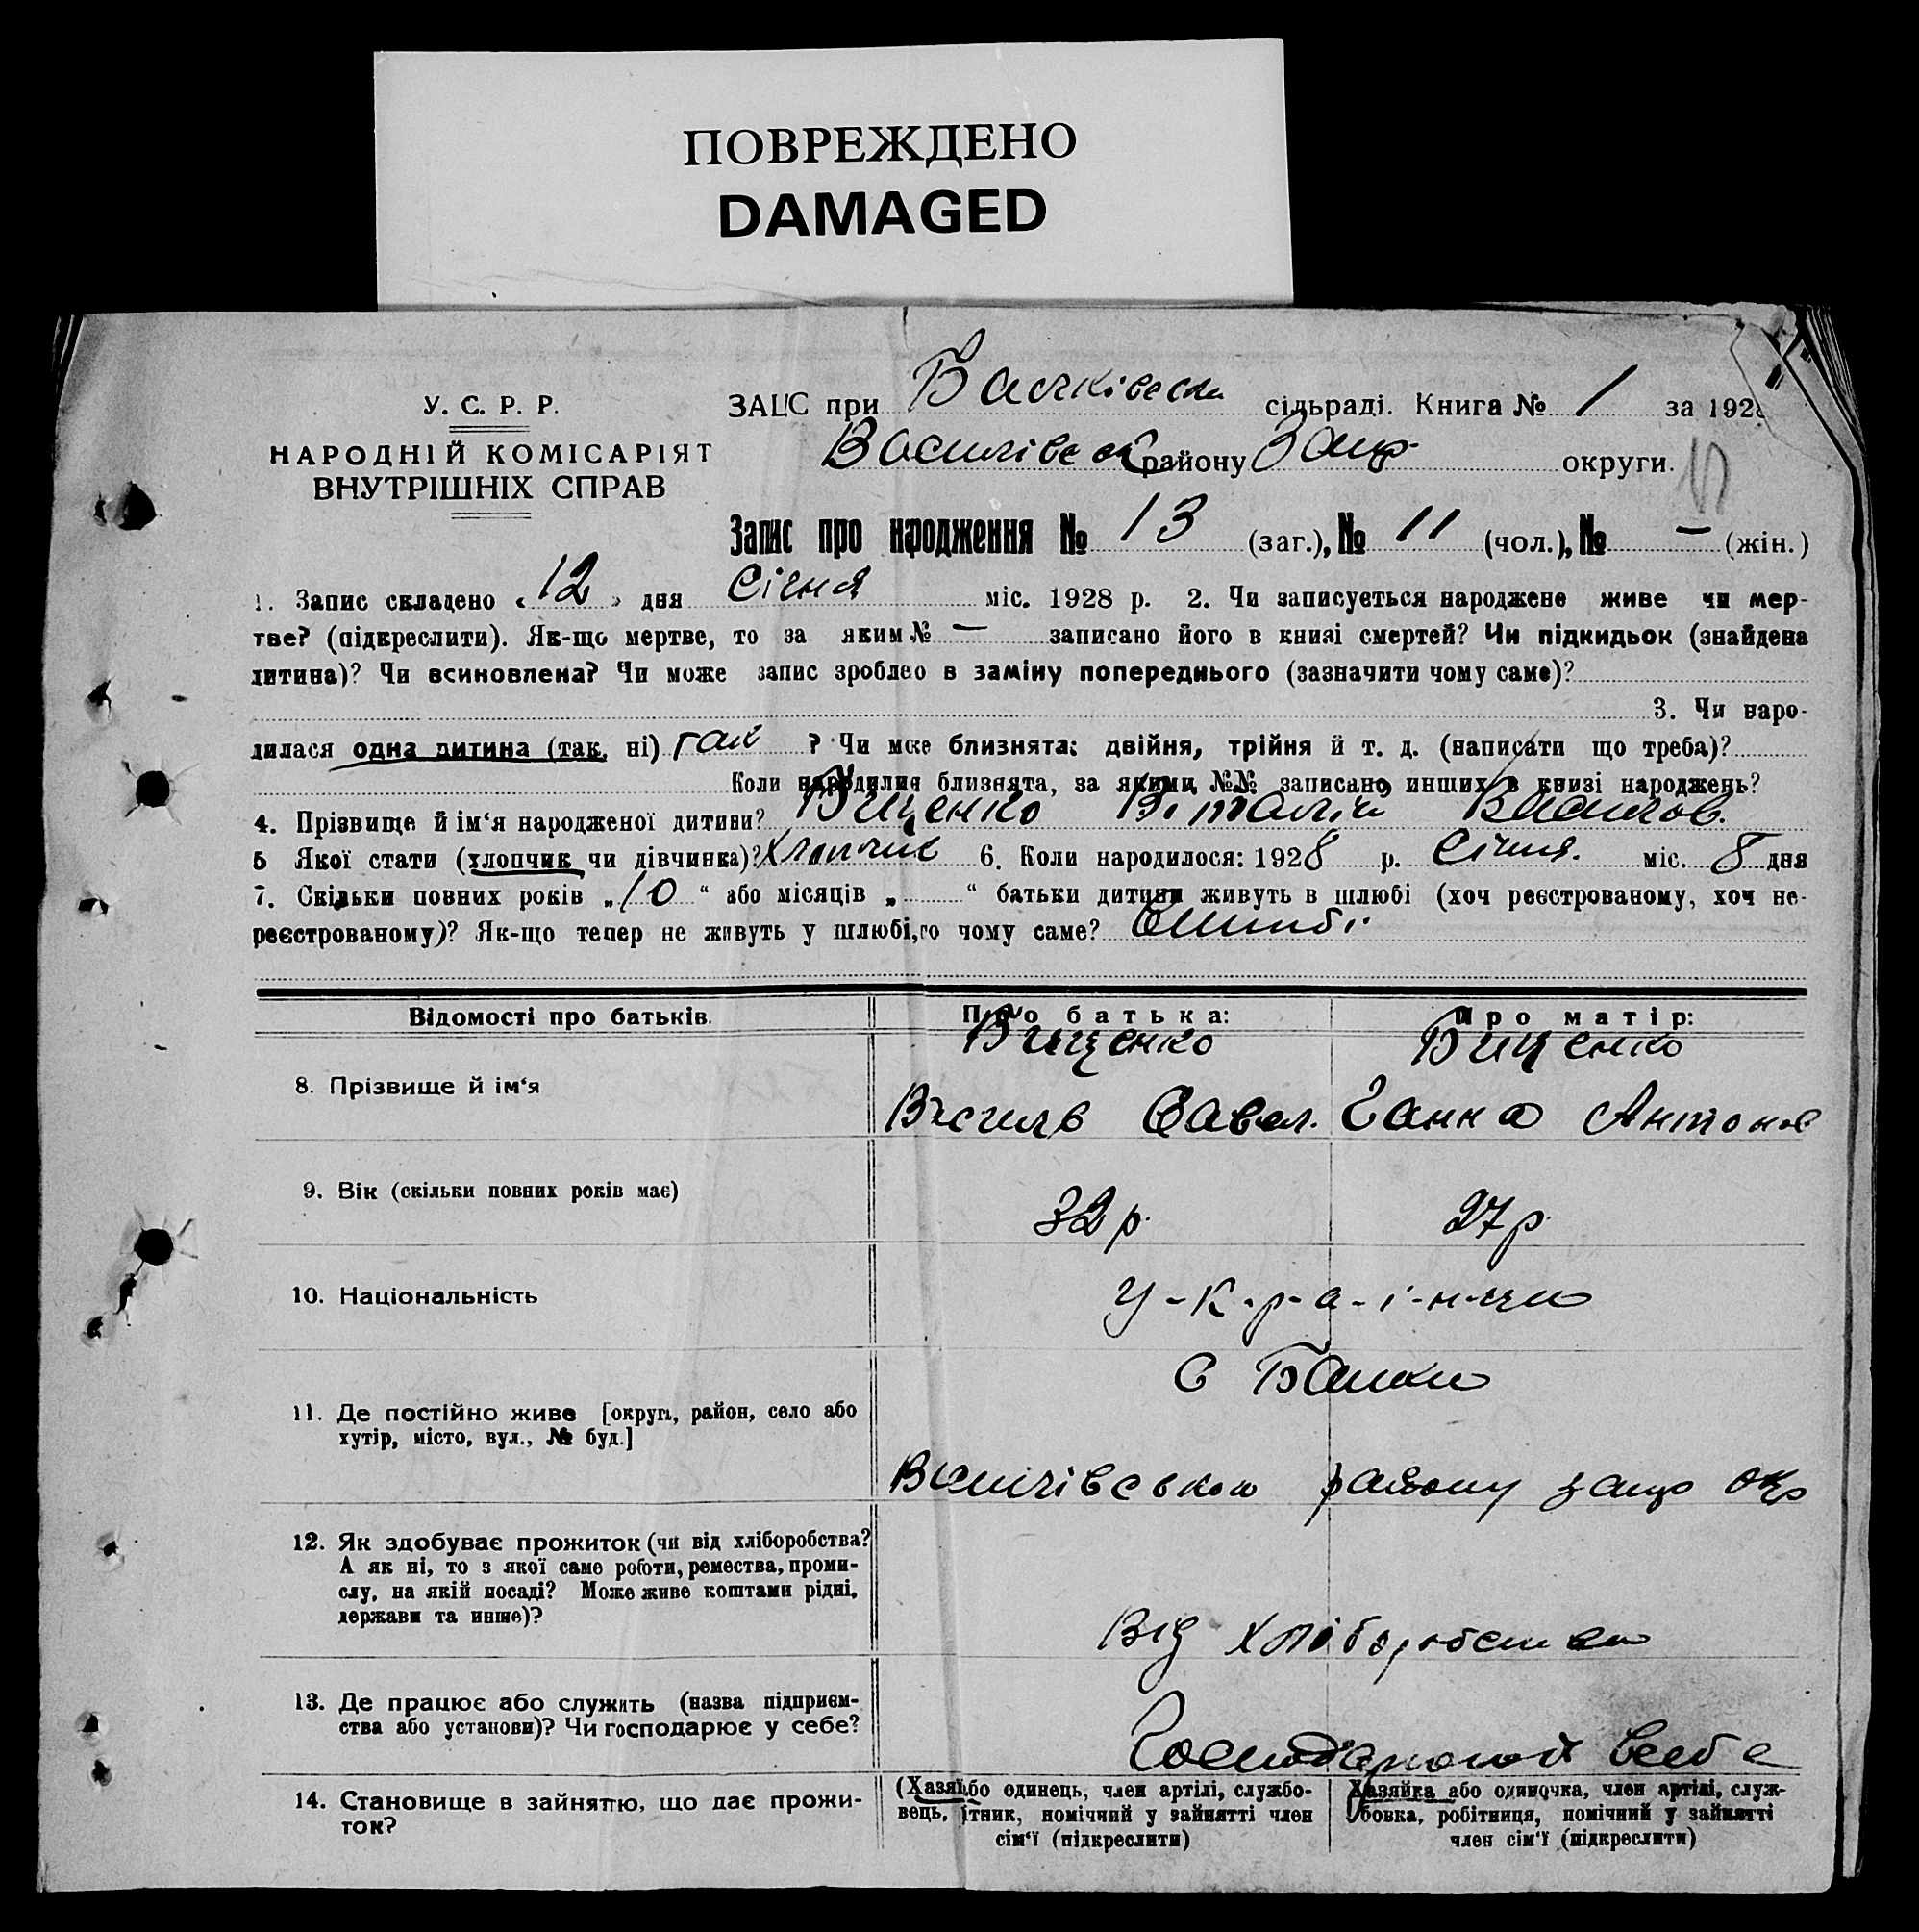 ПОВРЕЖДЕНО
DAMAGED
У. С. Р. Р.
НАРОДНІЙ КОМІСАРІЯТ
ВНУТРІШНІХ СПРАВ
ЗАЦС при сільраді. Книга № 1 за 1928
району Запр. округи.
Запис про народження № 13 (заг.), № 11 (чол.), № — (жін.)
1. Запис складено « 12 » дня Січня міс. 1928 р. 2. Чи записується народжене живе чи мер-
тве? (підкреслити). Як-що мертве, то за яким № — записано його в книзі смертей? Чи підкидьок (знайдена
дитина)? Чи всиновлена? Чи може запис зроблео в заміну попереднього (зазначити чому саме)?
3. Чи наро-
дилася одна дитина (так, ні) так ? Чи мже близнята: двійня, трійня й т. д. (написати що треба)?
Коли народилия близнята, за якими №№ записано инших в книзі народжень?
4. Прізвище й ім‘я народженої дитини? Бищенко Віталій Васильов.
5 Якої стати (хлопчик чи дівчинка)? Хлопчик 6. Коли народилося: 1928 р. Січня. міс. 8 дня
7. Скільки повних років „10“ або місяців „ “ батьки дитини живуть в шлюбі (хоч реєстрованому, хоч не-
реєстрованому)? Як-що тепер не живуть у шлюбі,то чому саме?
Відомості про батьків. Про батька: Про матір:
Бищенко Бищенко
8. Прізвище й ім‘я
Василь Савел. Ганна Антонов
9. Вік (скільки повних років має)
32 р. 27 р.
10. Національність У-к-р-а-ї-н-ци
с Балки
11. Де постійно живе [округа, район, село або
хутір, місто, вул., № буд.]
Василівського району Запр окр
12. Як здобуває прожиток (чи від хліборобства?
А як ні, то з якої саме роботи, ремества, проми-
слу, на якій посаді? Може живе коштами рідні,
держави та инше)?
Від хліборобства
13. Де працює або служить (назва підприєм-
ства або установи)? Чи господарює у себе?
Господарюють всебе
14. Становище в зайняттю, що дає прожи-
ток?
(Хазяїбо одинець, член артілі, службо-
вець, ітник, помічний у зайнятті член
сім‘ї (підкреслити)
Хазяйка або одиночка, член артілі, служ-
бовка, робітниця, помічний у зайнятті
член сім‘ї (підкреслити)